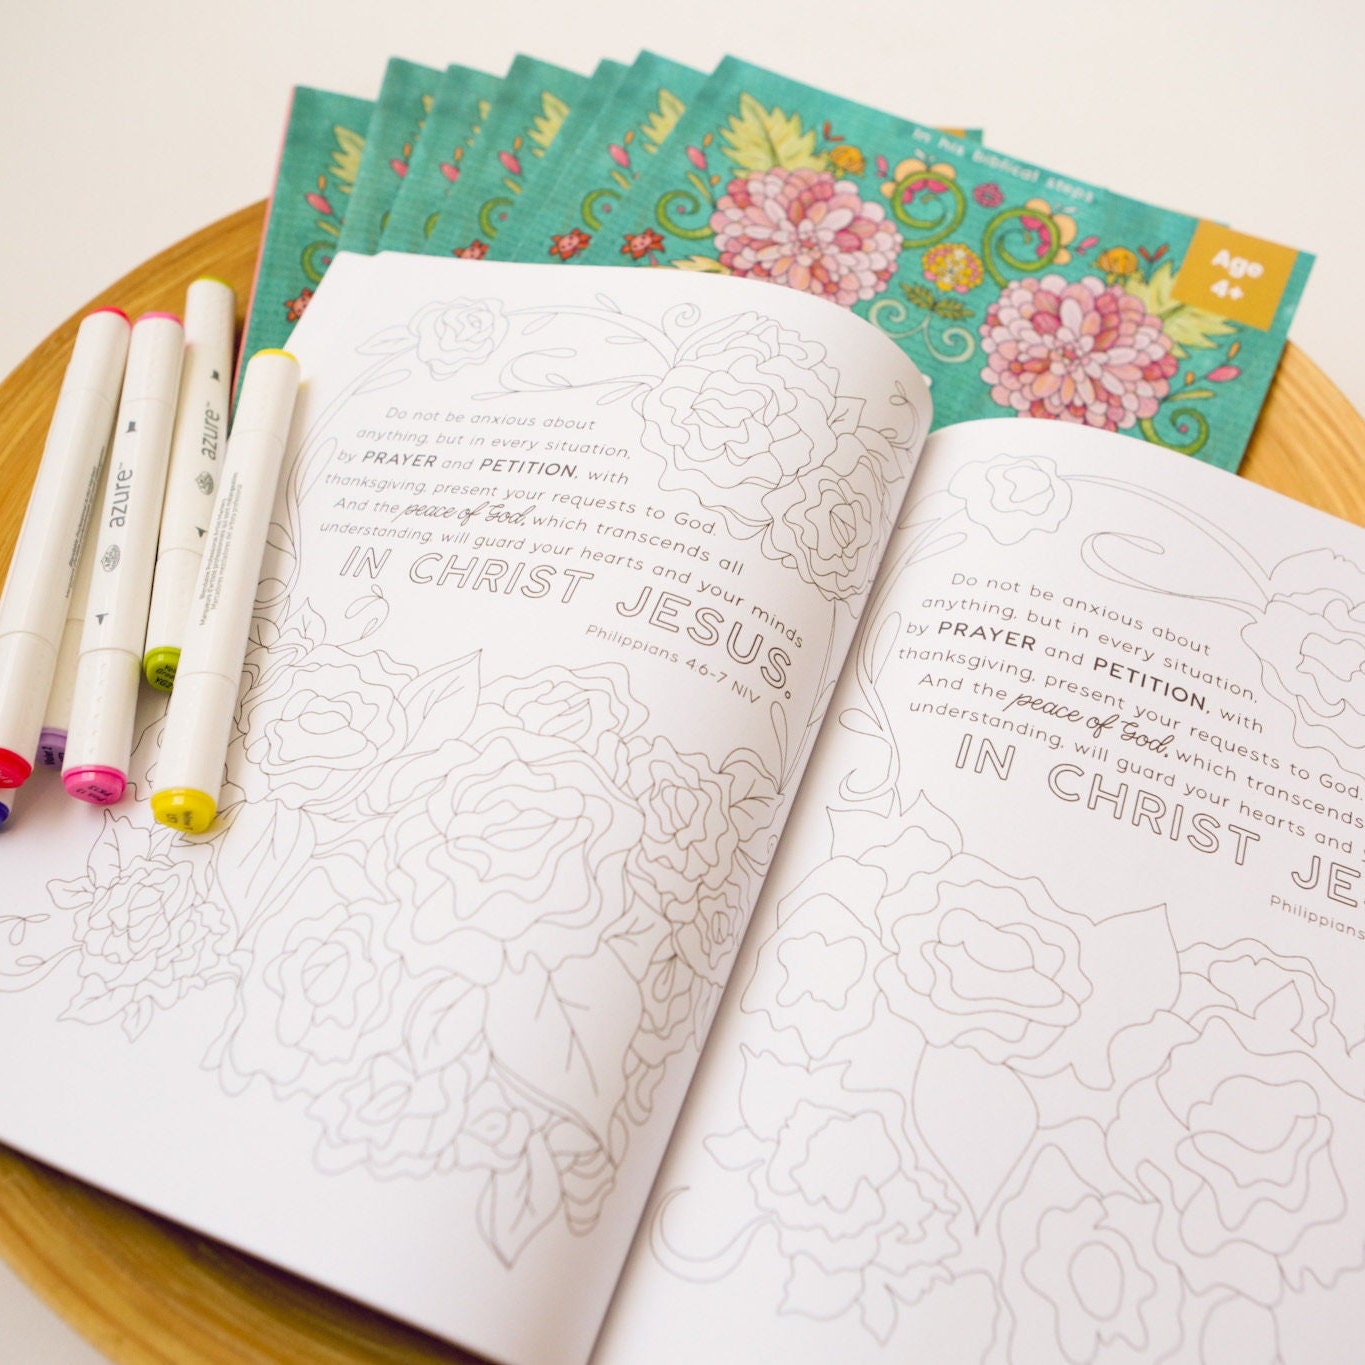 In his biblical steps
Age
4+
azure
azure
Do not be anxious about
anything, but in every situation,
by PRAYER and PETITION, with
thanksgiving, present your requests to God.
And the peace of God, which transcends all
understanding, will guard your hearts and your minds
IN CHRIST JESUS.
Philippians 4:6-7 NIV
Do not be anxious about
anything, but in every situation,
by PRAYER and PETITION, with
thanksgiving, present your requests to God.
And the peace of God, which transcends
understanding, will guard your hearts and
IN CHRIST JE
Philippians